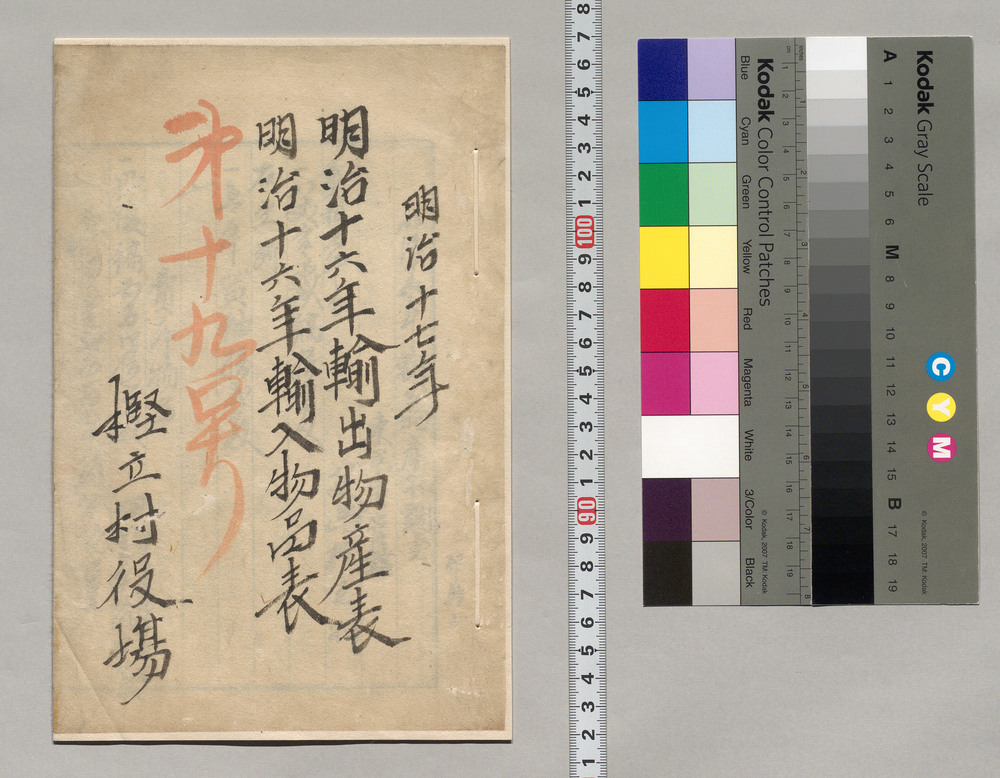 明治十七年
明治十六年輸出物産表
明治十六年輸入物品表
第十九号
樫立村役場
8 7 6 5 4 3 2 1 100 9 8 7 6 5 4 3 2 1 90 9 8 7 6 5 4 3 2 1
Kodak Color Control Patches
Blue Cyan Green Yellow Red Magenta White 3/Color Black
© Kodak, 2007 TM: Kodak
Kodak Gray Scale
A 1 2 3 4 5 6 M 8 9 10 11 12 13 14 15 B 17 18 19
C Y M
© Kodak, 2007 TM: Kodak